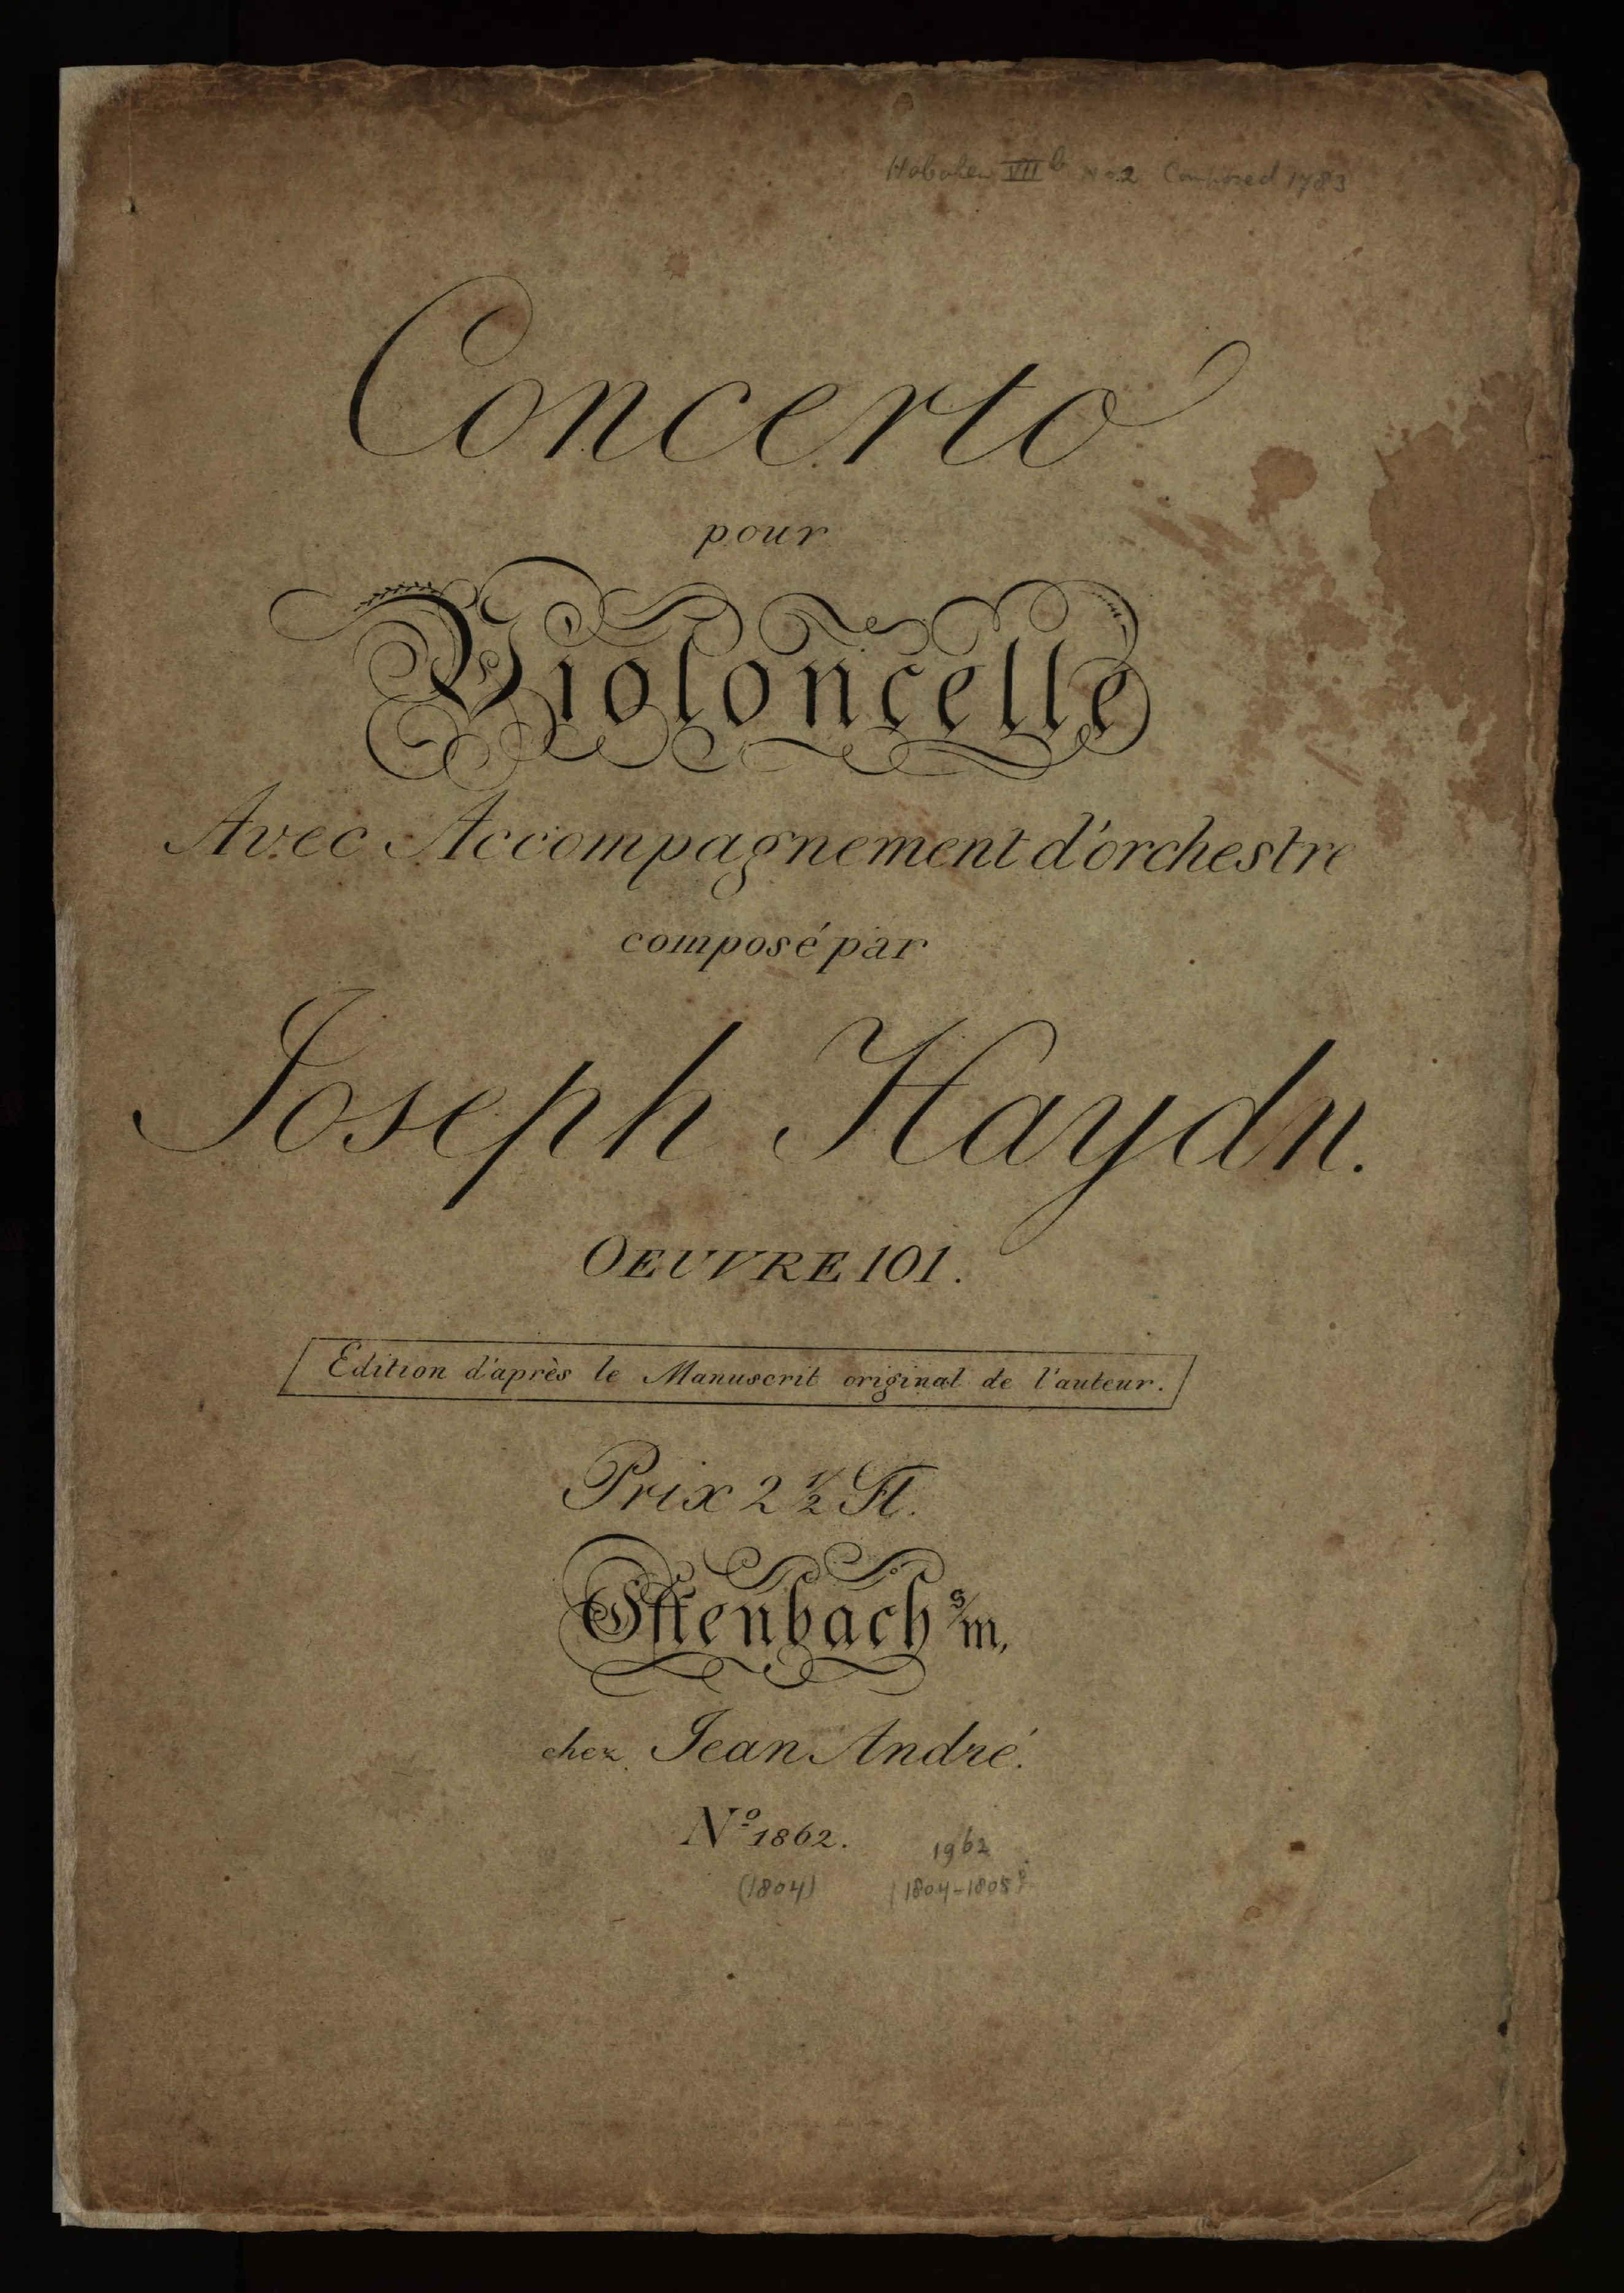 Hoboken VII b No. 2 Composed 1783
Concerto
pour
Violoncelle
Avec Accompagnement d'orchestre
composé par
Joseph Haydn.
OEUVRE 101.
Edition d'après le Manuscrit original de l'auteur.
Prix 2 1/2 Fl.
Offenbach s/m,
chez Jean André.
Nº 1862. 1962
(1804) (1804-1805)